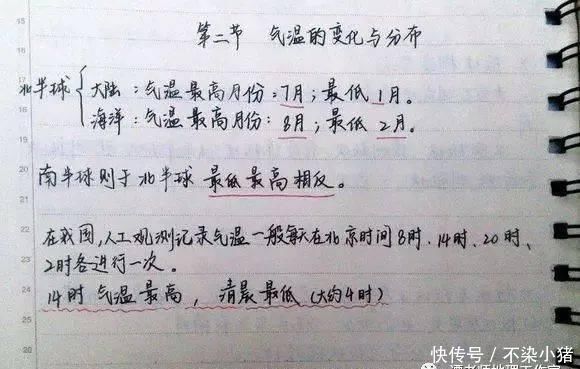 第二节 气温的变化与分布
北半球 { 大陆：气温最高月份：7月；最低1月。
海洋：气温最高月份：8月；最低2月。
南半球则于北半球最低最高相反。
在我国，人工观测记录气温一般每天在北京时间8时、14时、20时、
2时各进行一次。
14时气温最高，清晨最低（大约4时）
快传号／不染小猪
15
16
17
18
19
20
21
22
23
24
25
26